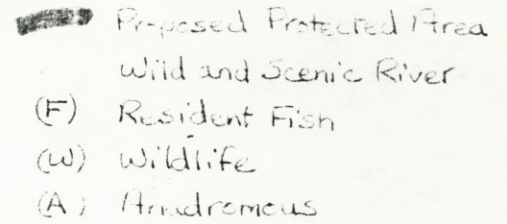 Proposed Protected Area
Wild and Scenic River
(F) Resident Fish
(W) Wildlife
(A) Anadromous